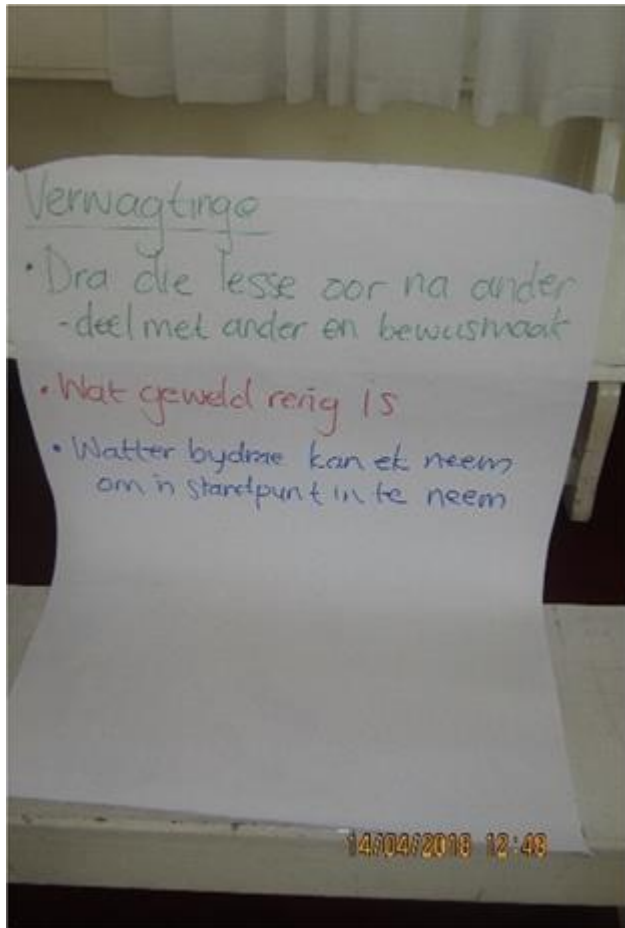 Verwagtinge
• Dra die lesse oor na ander
- deel met ander en bewusmaak
• Wat geweld rerig is
• Watter bydrae kan ek neem
om 'n standpunt in te neem
14/04/2018 12:48